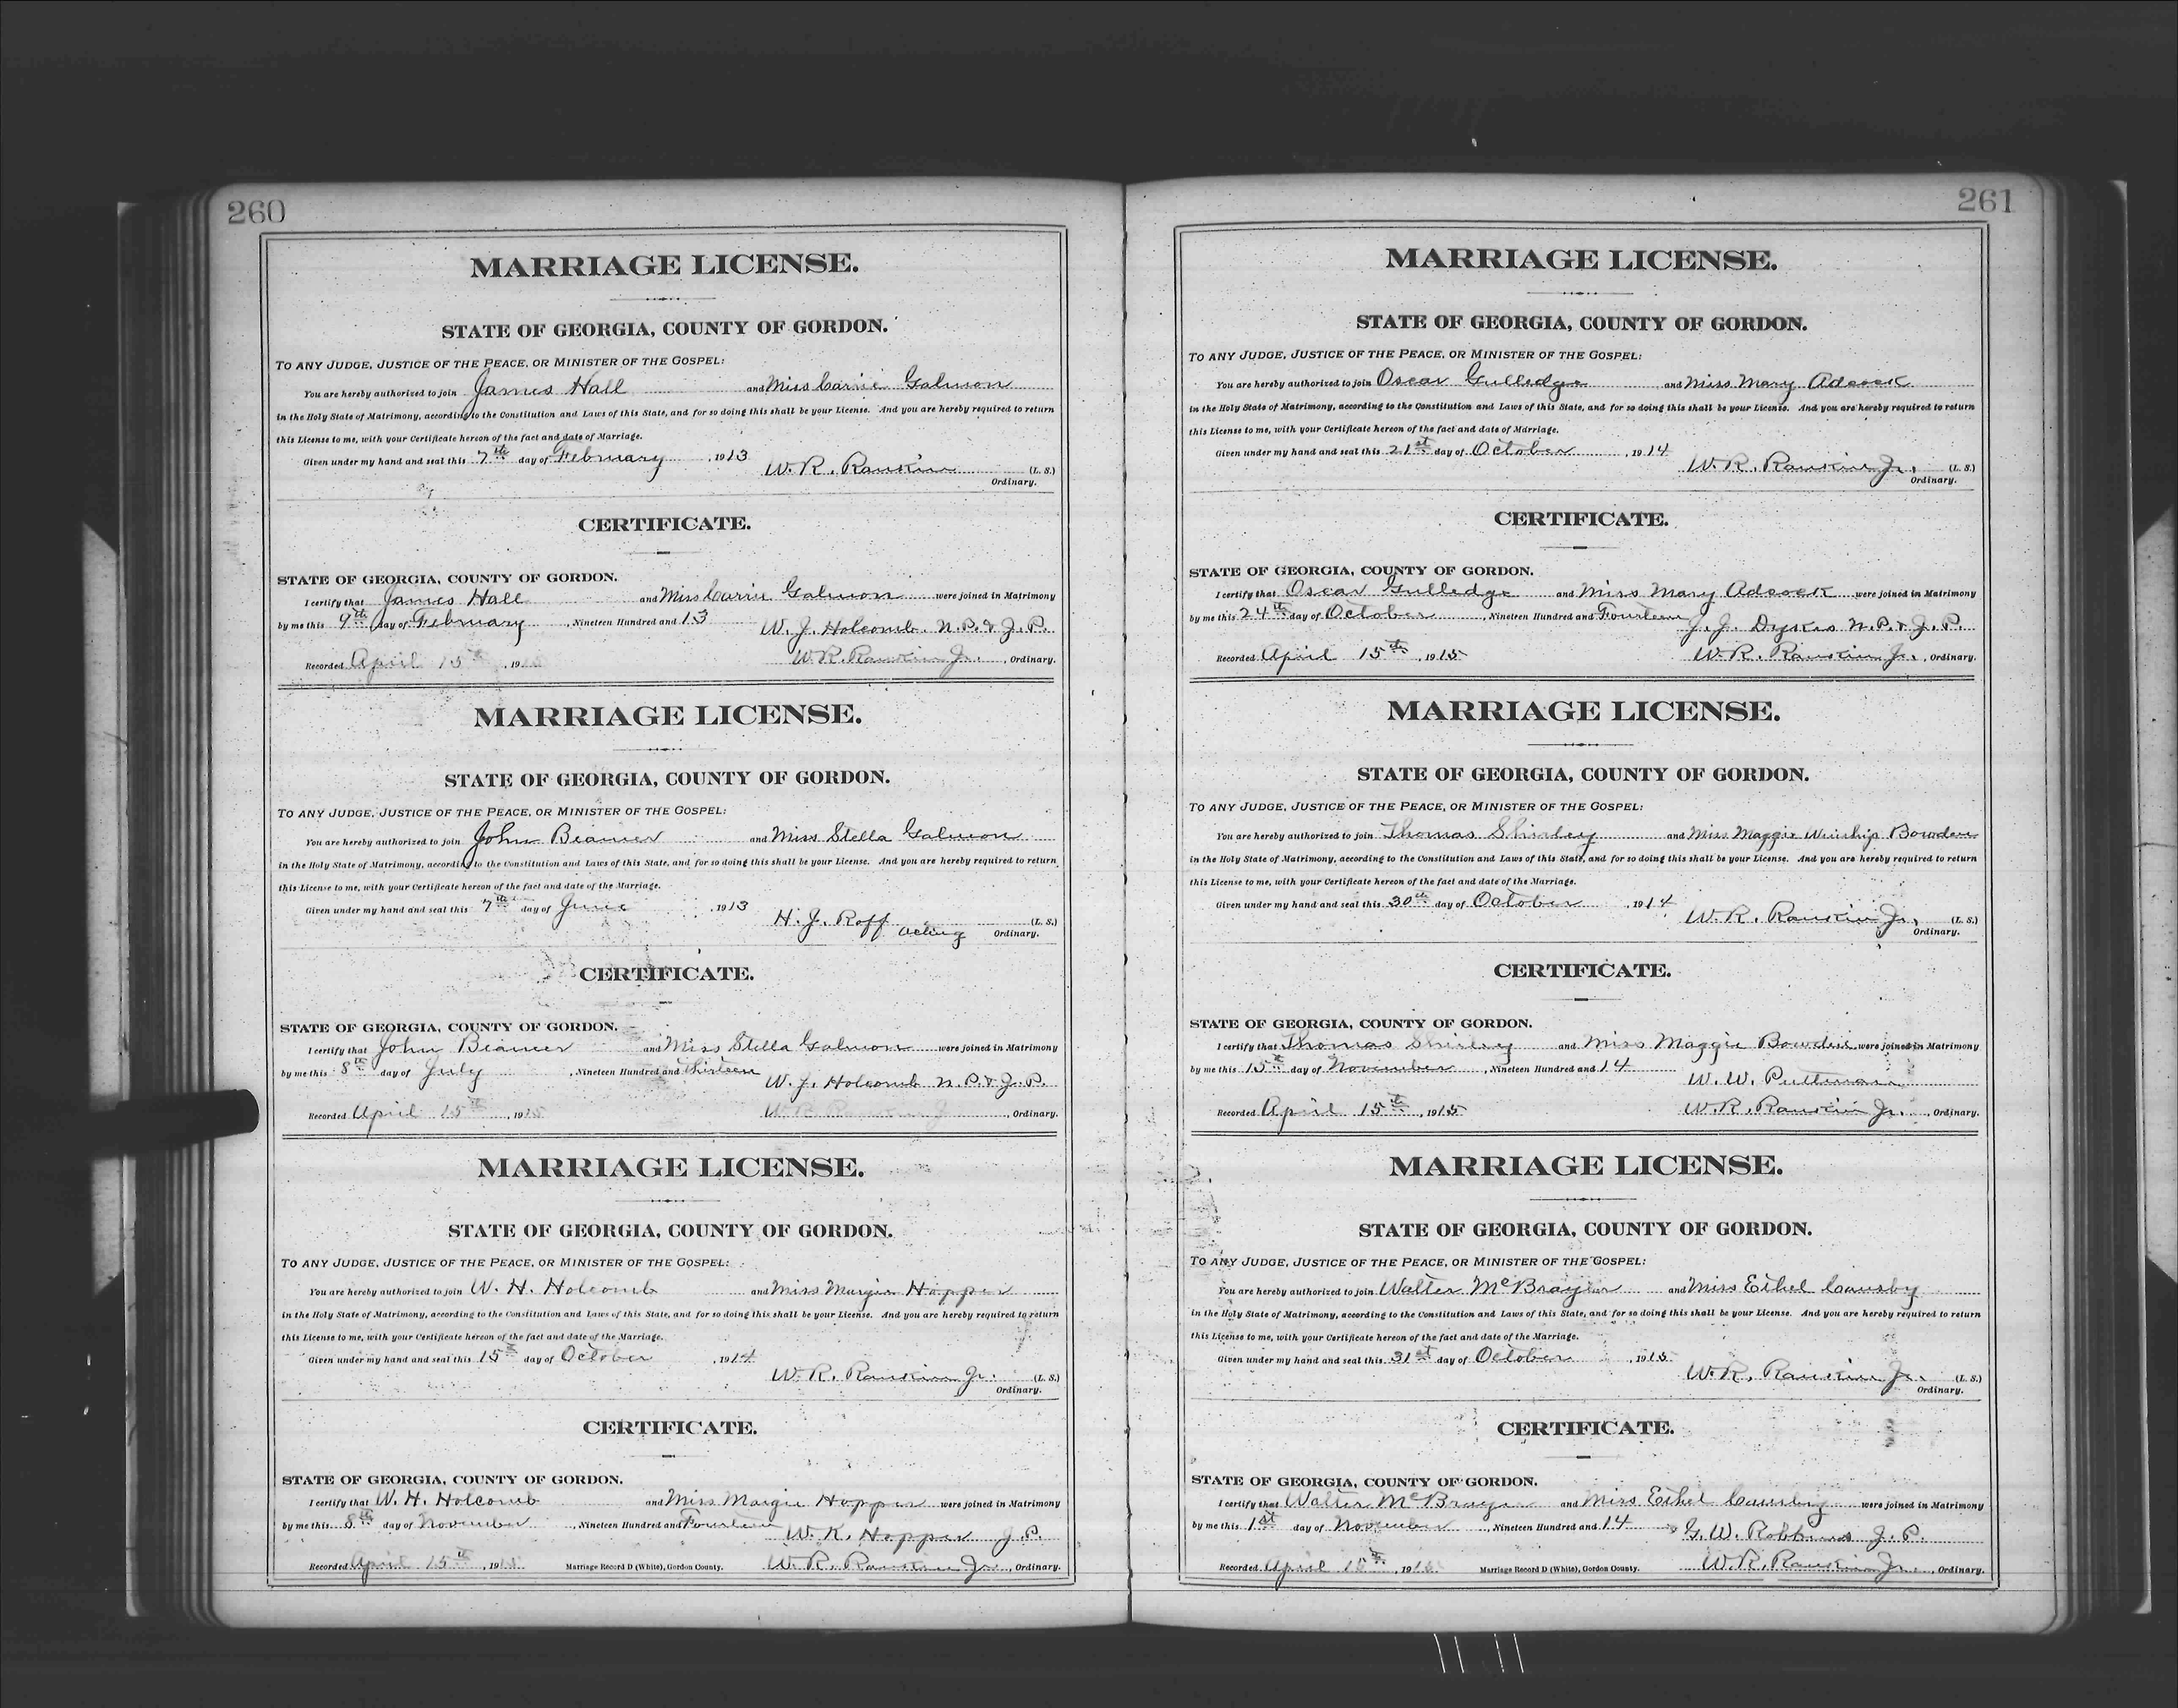 260
MARRIAGE LICENSE.
STATE OF GEORGIA, COUNTY OF GORDON.
TO ANY JUDGE, JUSTICE OF THE PEACE, OR MINISTER OF THE GOSPEL:
You are hereby authorized to join James Hall and Miss Carrie Galmon
in the Holy State of Matrimony, according to the Constitution and Laws of this State, and for so doing this shall be your License. And you are hereby required to return
this License to me, with your Certificate hereon of the fact and date of Marriage.
Given under my hand and seal this 7th day of February, 1913 W. R. Rankin (L. S.)
Ordinary.
CERTIFICATE.
STATE OF GEORGIA, COUNTY OF GORDON.
I certify that James Hall and Miss Carrie Galmon were joined in Matrimony
by me this 9th day of February, Nineteen Hundred and 13 W. J. Holcomb N. P. & J. P.
Recorded April 15th, 19 W. R. Rankin Jr., Ordinary.
MARRIAGE LICENSE.
STATE OF GEORGIA, COUNTY OF GORDON.
TO ANY JUDGE, JUSTICE OF THE PEACE, OR MINISTER OF THE GOSPEL:
You are hereby authorized to join John and Miss Stella Galmon
in the Holy State of Matrimony, according to the Constitution and Laws of this State, and for so doing this shall be your License. And you are hereby required to return
this License to me, with your Certificate hereon of the fact and date of the Marriage.
Given under my hand and seal this 7th day of June, 1913 H. J. Roff acting (L. S.)
Ordinary.
CERTIFICATE.
STATE OF GEORGIA, COUNTY OF GORDON.
I certify that John and Miss Stella Galmon were joined in Matrimony
by me this 8th day of July, Nineteen Hundred and thirteen W. J. Holcomb N. P. & J. P.
Recorded April 15th, 1915 W. R. Rankin J, Ordinary.
MARRIAGE LICENSE.
STATE OF GEORGIA, COUNTY OF GORDON.
TO ANY JUDGE, JUSTICE OF THE PEACE, OR MINISTER OF THE GOSPEL:
You are hereby authorized to join W. H. Holcomb and Miss Margie Hopper
in the Holy State of Matrimony, according to the Constitution and Laws of this State, and for so doing this shall be your License. And you are hereby required to return
this License to me, with your Certificate hereon of the fact and date of the Marriage.
Given under my hand and seal this 15th day of October, 1914
W. R. Rankin Jr. (L. S.)
Ordinary.
CERTIFICATE.
STATE OF GEORGIA, COUNTY OF GORDON.
I certify that W. H. Holcomb and Miss Margie Hopper were joined in Matrimony
by me this 8th day of November, Nineteen Hundred and Fourteen W. K. Hopper J. P.
Recorded April 15th, 1915 Marriage Record D (White), Gordon County. W. R. Rankin Jr., Ordinary.
261
MARRIAGE LICENSE.
STATE OF GEORGIA, COUNTY OF GORDON.
TO ANY JUDGE, JUSTICE OF THE PEACE, OR MINISTER OF THE GOSPEL:
You are hereby authorized to join Oscar Gulledge and Miss Mary Adcock
in the Holy State of Matrimony, according to the Constitution and Laws of this State, and for so doing this shall be your License. And you are hereby required to return
this License to me, with your Certificate hereon of the fact and date of Marriage.
Given under my hand and seal this 21st day of October, 1914
W. R. Rankin Jr. (L. S.)
Ordinary.
CERTIFICATE.
STATE OF GEORGIA, COUNTY OF GORDON.
I certify that Oscar Gulledge and Miss Mary Adcock were joined in Matrimony
by me this 24th day of October, Nineteen Hundred and Fourteen J. J. Dykes N. P. & J. P.
Recorded April 15th, 1915 W. R. Rankin Jr., Ordinary.
MARRIAGE LICENSE.
STATE OF GEORGIA, COUNTY OF GORDON.
TO ANY JUDGE, JUSTICE OF THE PEACE, OR MINISTER OF THE GOSPEL:
You are hereby authorized to join Thomas Shirley and Miss Maggie Winship Bowden
in the Holy State of Matrimony, according to the Constitution and Laws of this State, and for so doing this shall be your License. And you are hereby required to return
this License to me, with your Certificate hereon of the fact and date of the Marriage.
Given under my hand and seal this 30th day of October, 1914
W. R. Rankin Jr, (L. S.)
Ordinary.
CERTIFICATE.
STATE OF GEORGIA, COUNTY OF GORDON.
I certify that Thomas Shirley and Miss Maggie Bowden were joined in Matrimony
by me this 15th day of November, Nineteen Hundred and 14 W. W. Puttman
Recorded April 15th, 1915 W. R. Rankin Jr., Ordinary.
MARRIAGE LICENSE.
STATE OF GEORGIA, COUNTY OF GORDON.
TO ANY JUDGE, JUSTICE OF THE PEACE, OR MINISTER OF THE GOSPEL:
You are hereby authorized to join Walter McBrayer and Miss Ethel Causby
in the Holy State of Matrimony, according to the Constitution and Laws of this State, and for so doing this shall be your License. And you are hereby required to return
this License to me, with your Certificate hereon of the fact and date of the Marriage.
Given under my hand and seal this 31st day of October, 1915
W. R. Rankin Jr. (L. S.)
Ordinary.
CERTIFICATE.
STATE OF GEORGIA, COUNTY OF GORDON.
I certify that Walter McBrayer and Miss Ethel Causby were joined in Matrimony
by me this 1st day of November, Nineteen Hundred and 14 G. W. Robbins J. P.
Recorded April 15th, 191 Marriage Record D (White), Gordon County. W. R. Rankin Jr., Ordinary.